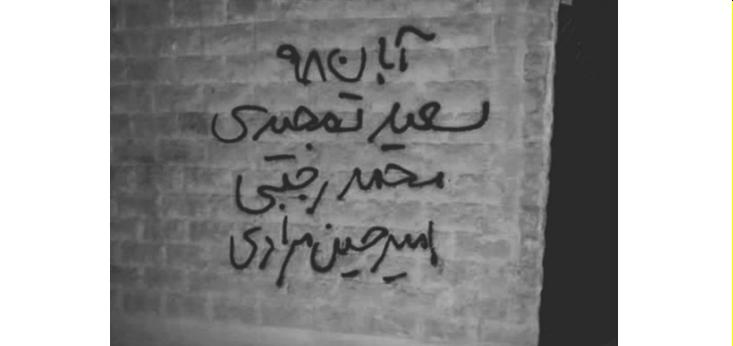 آبان ۹۸
سعید تمجیدی
محمد رجبی
امیرحسین مرادی